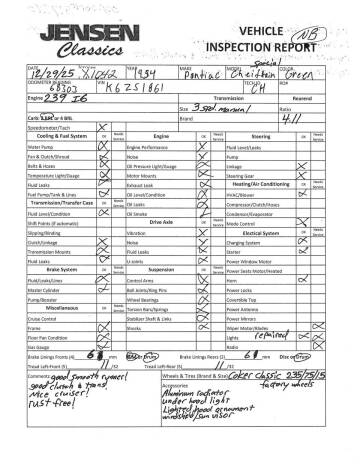 JENSEN
Classics
VEHICLE
INSPECTION REPORT
NB
DATE 12/29/25 X1042 YEAR 1954 MAKE Pontiac MODEL Special Chieftain COLOR Green
ODOMETER READING 68303 VIN K6ZS1861 TECH/RO CH
Engine 239 I6 Transmission Rearend
Size 3 spd. manual Ratio
Carb: 2 BBL or 4 BBL Brand 4.11
Speedometer/Tach
Cooling & Fuel System OK Needs Service Engine OK Needs Service Steering OK Needs Service
Water Pump Engine Performance Fluid Leaks/Level
Fan & Clutch/Shroud Noise Pump
Belts & Hoses Oil Pressure Light/Gauge Linkage
Temperature Light/Gauge Motor Mounts Steering Gear
Fluid Leaks Exhaust Leak Heating/Air Conditioning OK Needs Service
Fuel Pump/Tank & Lines Oil Level/Condition HVAC/Blower
Transmission/Transfer Case OK Needs Service Oil Leaks Compressor/Clutch/Hoses
Fluid Level/Condition Oil Smoke Condensor/Evaporator
Shift Points (if automatic) Drive Axle OK Needs Service Mode Control
Slipping/Binding Vibration Electrical System OK Needs Service
Clutch/Linkage Noise Charging System
Transmission Mounts Fluid Level Starter
Fluid Leaks Fluid Leaks Power Window Motor
Brake System OK Needs Service U-Joints Power Seats Motor/Heated
Fluid/Leaks/Lines Suspension OK Needs Service Horn
Master Cylinder Control Arms Power Locks
Pump/Booster Ball Joints/King Pins Covertible Top
Miscellaneous OK Needs Service Wheel Bearings Power Antenna
Cruise Control Torsion Bars/Springs Power Mirrors
Frame Stabilizer Shaft & Links Wiper Motor/Blades
Floor Pan Condition Shocks Lights repaired
Gas Gauge Radio
Brake Lining Fronts (4) 6 mm Disc or Drum Brake Lining Rears (5) 6 mm Disc or Drum
Tread Left-Front (5) 11 /32 Tread Left-Rear (5) 11 /32
Comments: good smooth runner! Wheels & Tires (Brand & Size) Coker Classic 235/75/15
good clutch & trans! Accessories factory wheels
nice cruiser! Aluminum radiator
rust free! under hood light
Lighted hood ornament
windshield/sun visor